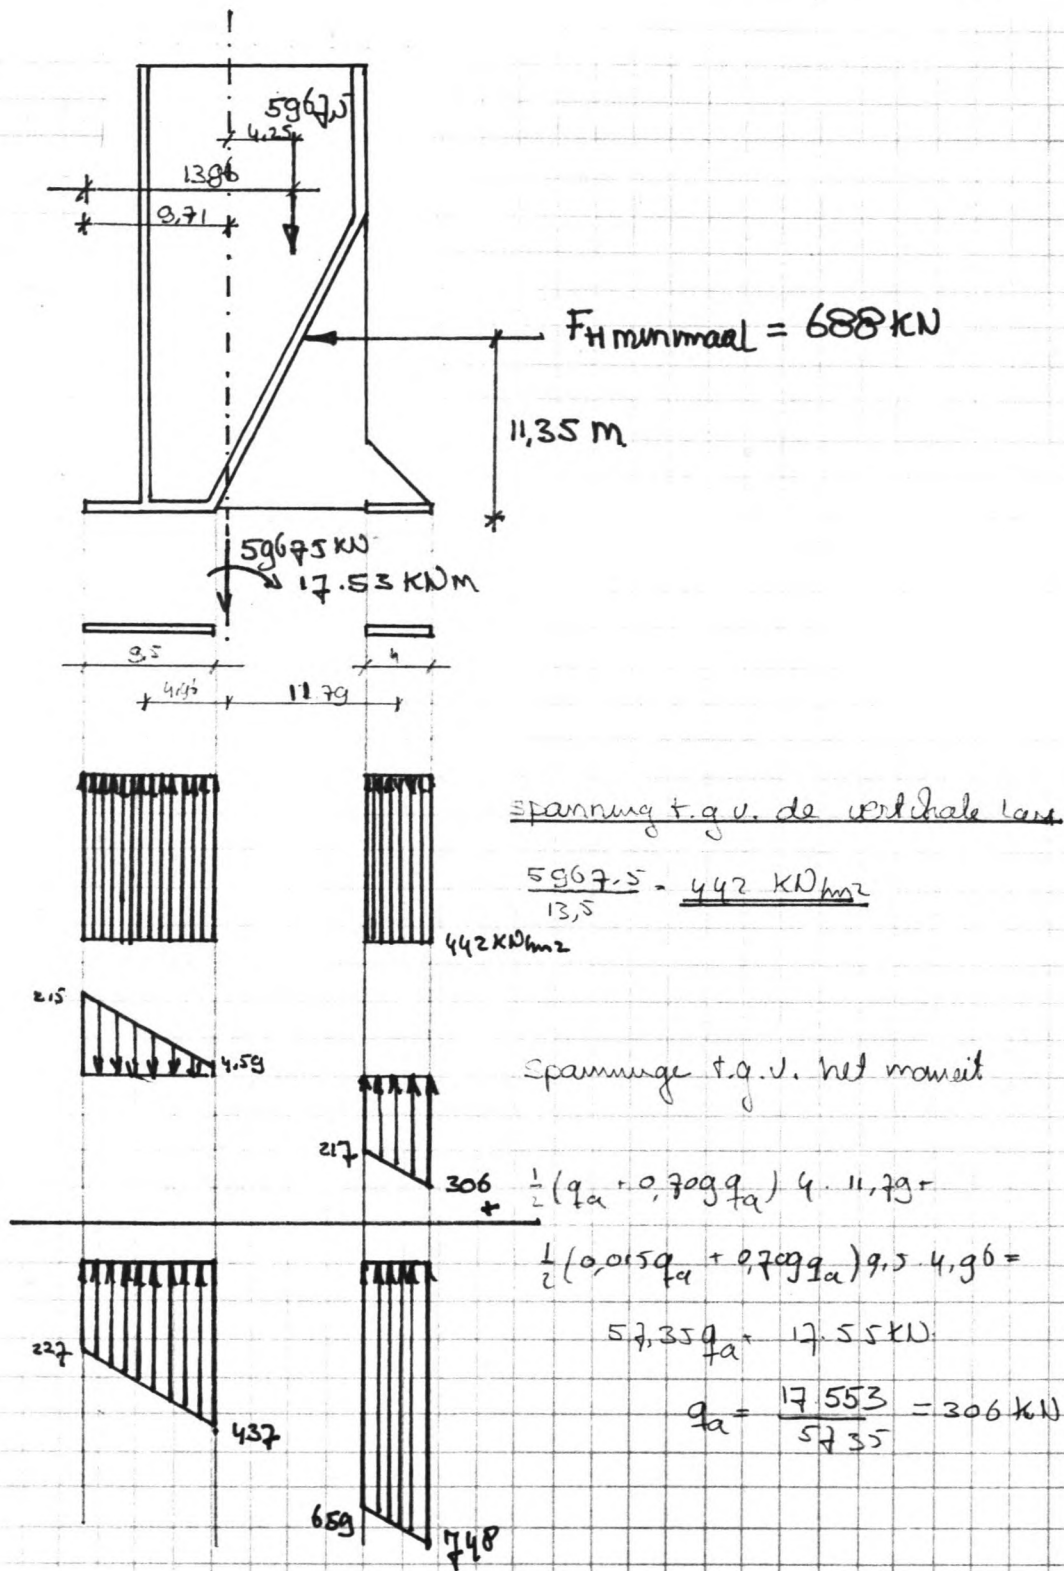 5967,5
4,25
13,96
9,71
F H minimaal = 688 KN
11,35 m
5967,5 KN
17.53 KNm
9,5
4
4,96
11.79
spanning t.g.v. de vertikale last
5967.5 / 13,5 = 442 KN/m2
442 KN/m2
215
4,59
spanninge t.g.v. het moment
217
306
+
½(qa + 0,709 qa) 4 · 11,79 +
½(0,015 qa + 0,709 qa) 9,5 · 4,96 =
57,35 qa = 17.55 KN
227
qa = 17.553 / 57.35 = 306 KN
437
659
748